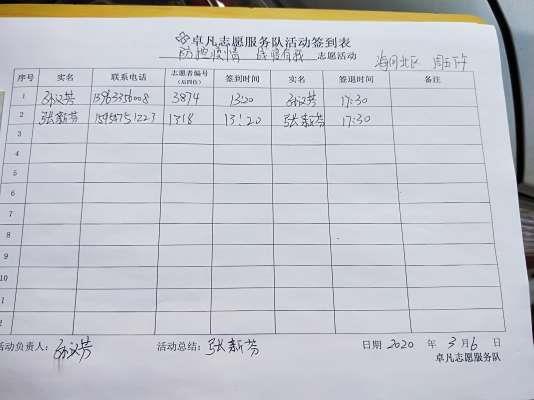 卓凡志愿服务队活动签到表
防控疫情 战疫有我 志愿活动 海河北区 周五下午
序号 实名 联系电话 志愿者编号 签到时间 实名 签退时间 备注
(后四位)
1 3874 13:20 17:30
2 张新芳 15958751223 1318 13:20 张新芳 17:30
3
4
5
6
7
8
9
10
1
2
活动负责人: 活动总结: 张新芳 日期 2020 年 3 月 6 日
卓凡志愿服务队